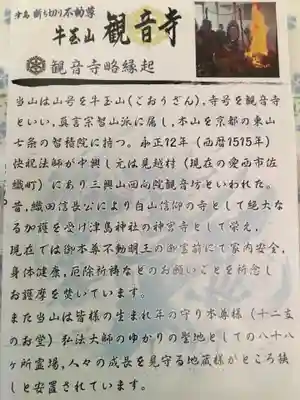 津島 断ち切り不動尊
牛玉山 観音寺
観音寺略縁起
当山は山号を牛玉山(ごおうざん)、寺号を観音寺
といい、真言宗智山派に属し、本山を京都の東山
七条の智積院に持つ。永正12年(西暦1515年)
快祝法師が中興し元は見越村(現在の愛西市佐
織町)にあり三興山回向院観音坊といわれた。
昔、織田信長公により白山信仰の寺として絶大な
るか護を受け津島神社の神宮寺として栄え、
現在では御本尊不動明王の御宝前にて家内安全、
身体健康、厄除祈祷などのお願いごとを祈念し
お護摩を焚いています。
また当山は皆様の生まれ年の守り本尊様(十二支
のお堂)弘法大師のゆかりの聖地としての八十八
ヶ所霊場、人々の成長を見守る地蔵様がところ狭
しと安置されています。